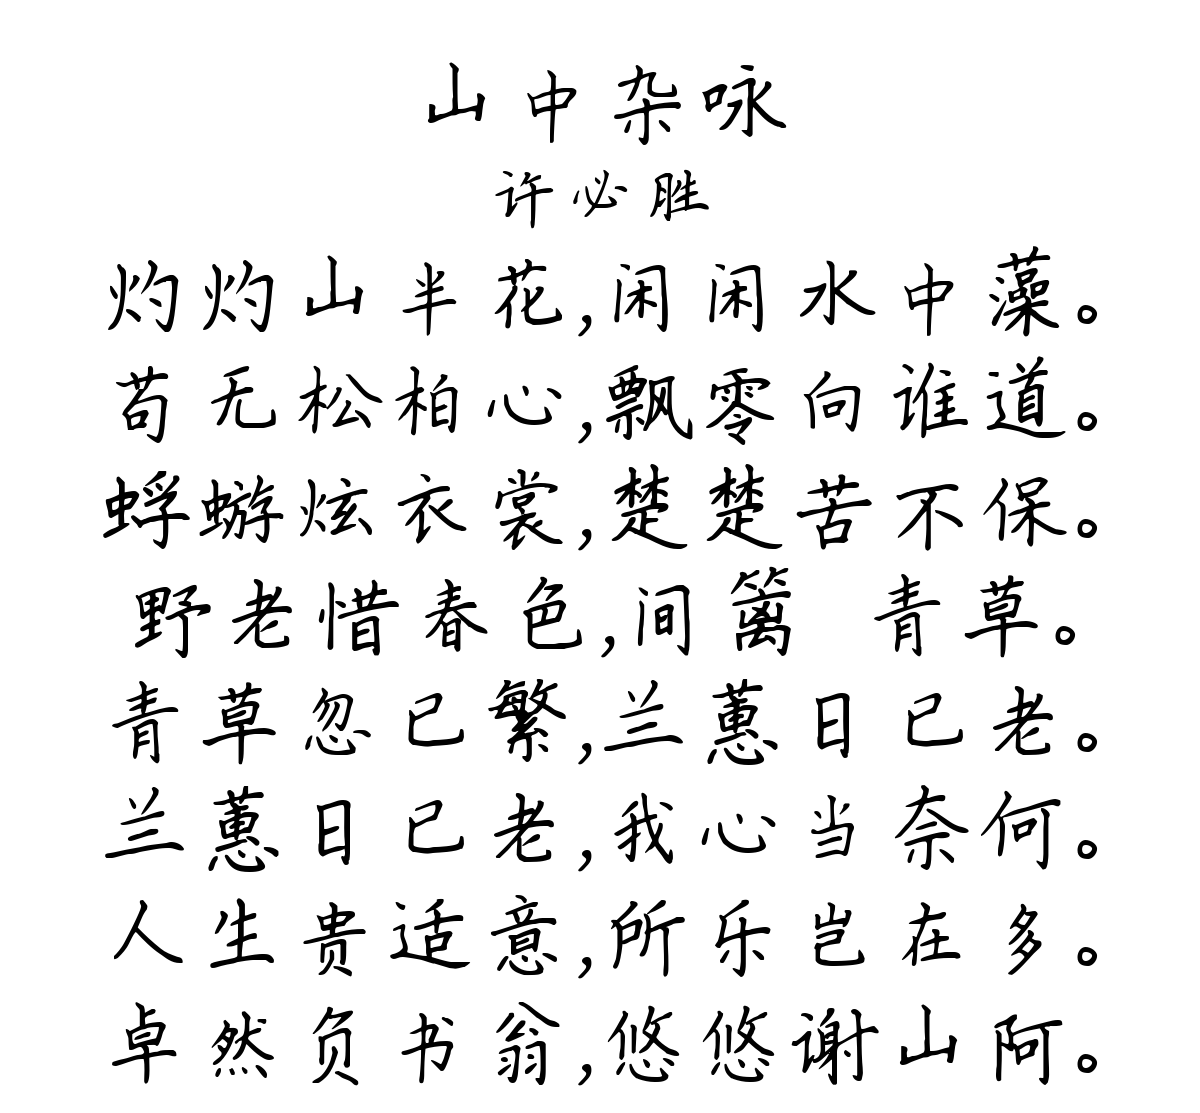 山中杂咏
许必胜
灼灼山半花,闲闲水中藻。
苟无松柏心,飘零向谁道。
蜉蝣炫衣裳,楚楚苦不保。
野老惜春色,间篱 青草。
青草忽已繁,兰蕙日已老。
兰蕙日已老,我心当奈何。
人生贵适意,所乐岂在多。
卓然负书翁,悠悠谢山阿。